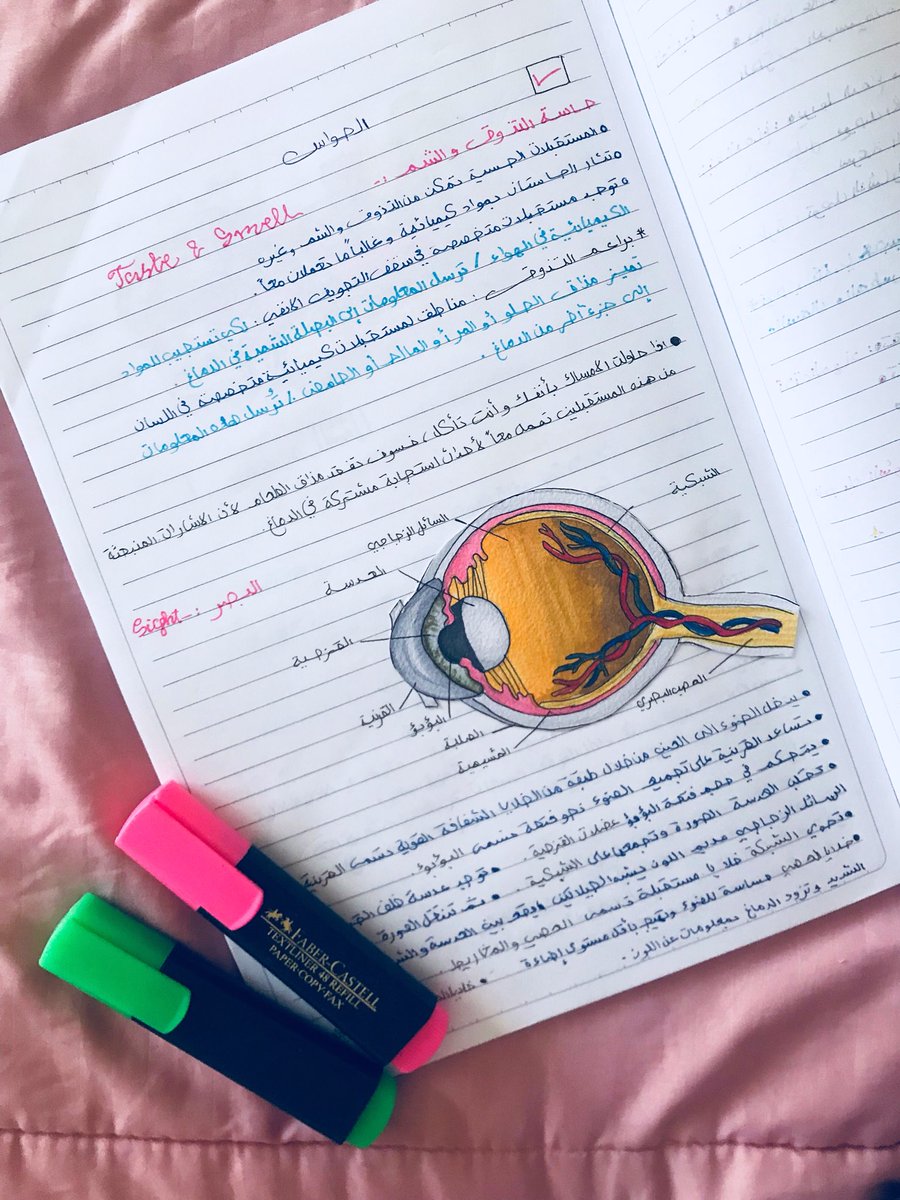 الحواس
حاسة التذوق والشم :-
Taste & Smell
• المستقبلات الحسية تمكن من التذوق والشم وغيره
• تثار الحاستان بمواد كيميائية وغالباً ما تعملان معاً.
• توجد مستقبلات متخصصة في سقف التجويف الأنفي : لكي تستجيب للمواد
الكيميائية في الهواء / ترسل المعلومات إلى البصيلة الشمية في الدماغ .
# براعم التذوق : مناطق لمستقبلات كيميائية متخصصة في اللسان
تميز مذاق الحلو أو المر أو المالح أو الحامض / تُرسل هذه المعلومات
إلى جزء آخر من الدماغ .
• اذا حاولت الامساك بأنفك وأنت تأكل ، فسوف تفقد مذاق الطعام لأن الاشارات المنبعثة
من هذه المستقبلين تعمل معاً لأحداث استجابة مشتركة في الدماغ.
Sight :- البصر
الشبكية
السائل الزجاجي
العدسة
القزحية
القرنية
البؤبؤ
الصلبة
المشيمية
العصب البصري
• يدخل الضوء الى العين من خلال طبقة من الخلايا الشفافة القوية تسمى القرنية
• تساعد القرنية على تجميع الضوء نحو فتحة تسمى البؤبؤ.
• يتحكم في حجم فتحة البؤبؤ عضلات القزحية . • توجد عدسة خلف
• تقلب العدسة الصورة وتجمعها على الشبكية . • ثم تنتقل الصورة
السائل الزجاجي عديم اللون يشبه الجيلاتين يقع بين العدسة
• تحوي الشبكة خلايا مستقبلة تسمى العصي والمخاريط .
• خلايا العصي حساسة للضوء وتهيج بأقل مستوى إضاءة
الشديد وتزود الدماغ بمعلومات عن اللون.
FABER-CASTELL
TEXTLINER 48 REFILL
PAPER·COPY·FAX